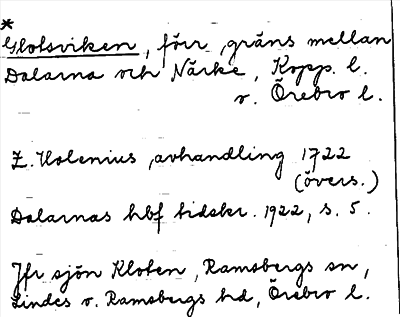 *
Glotsviken, förr gräns mellan
Dalarna och Närke, Kopp. l.
o. Örebro l.
Z. Holenius, avhandling 1722
(övers.)
Dalarnas hbf tidskr. 1922, s. 5.
Jfr sjön Kloten, Ramsbergs sn,
Lindes o. Ramsbergs hd, Örebro l.